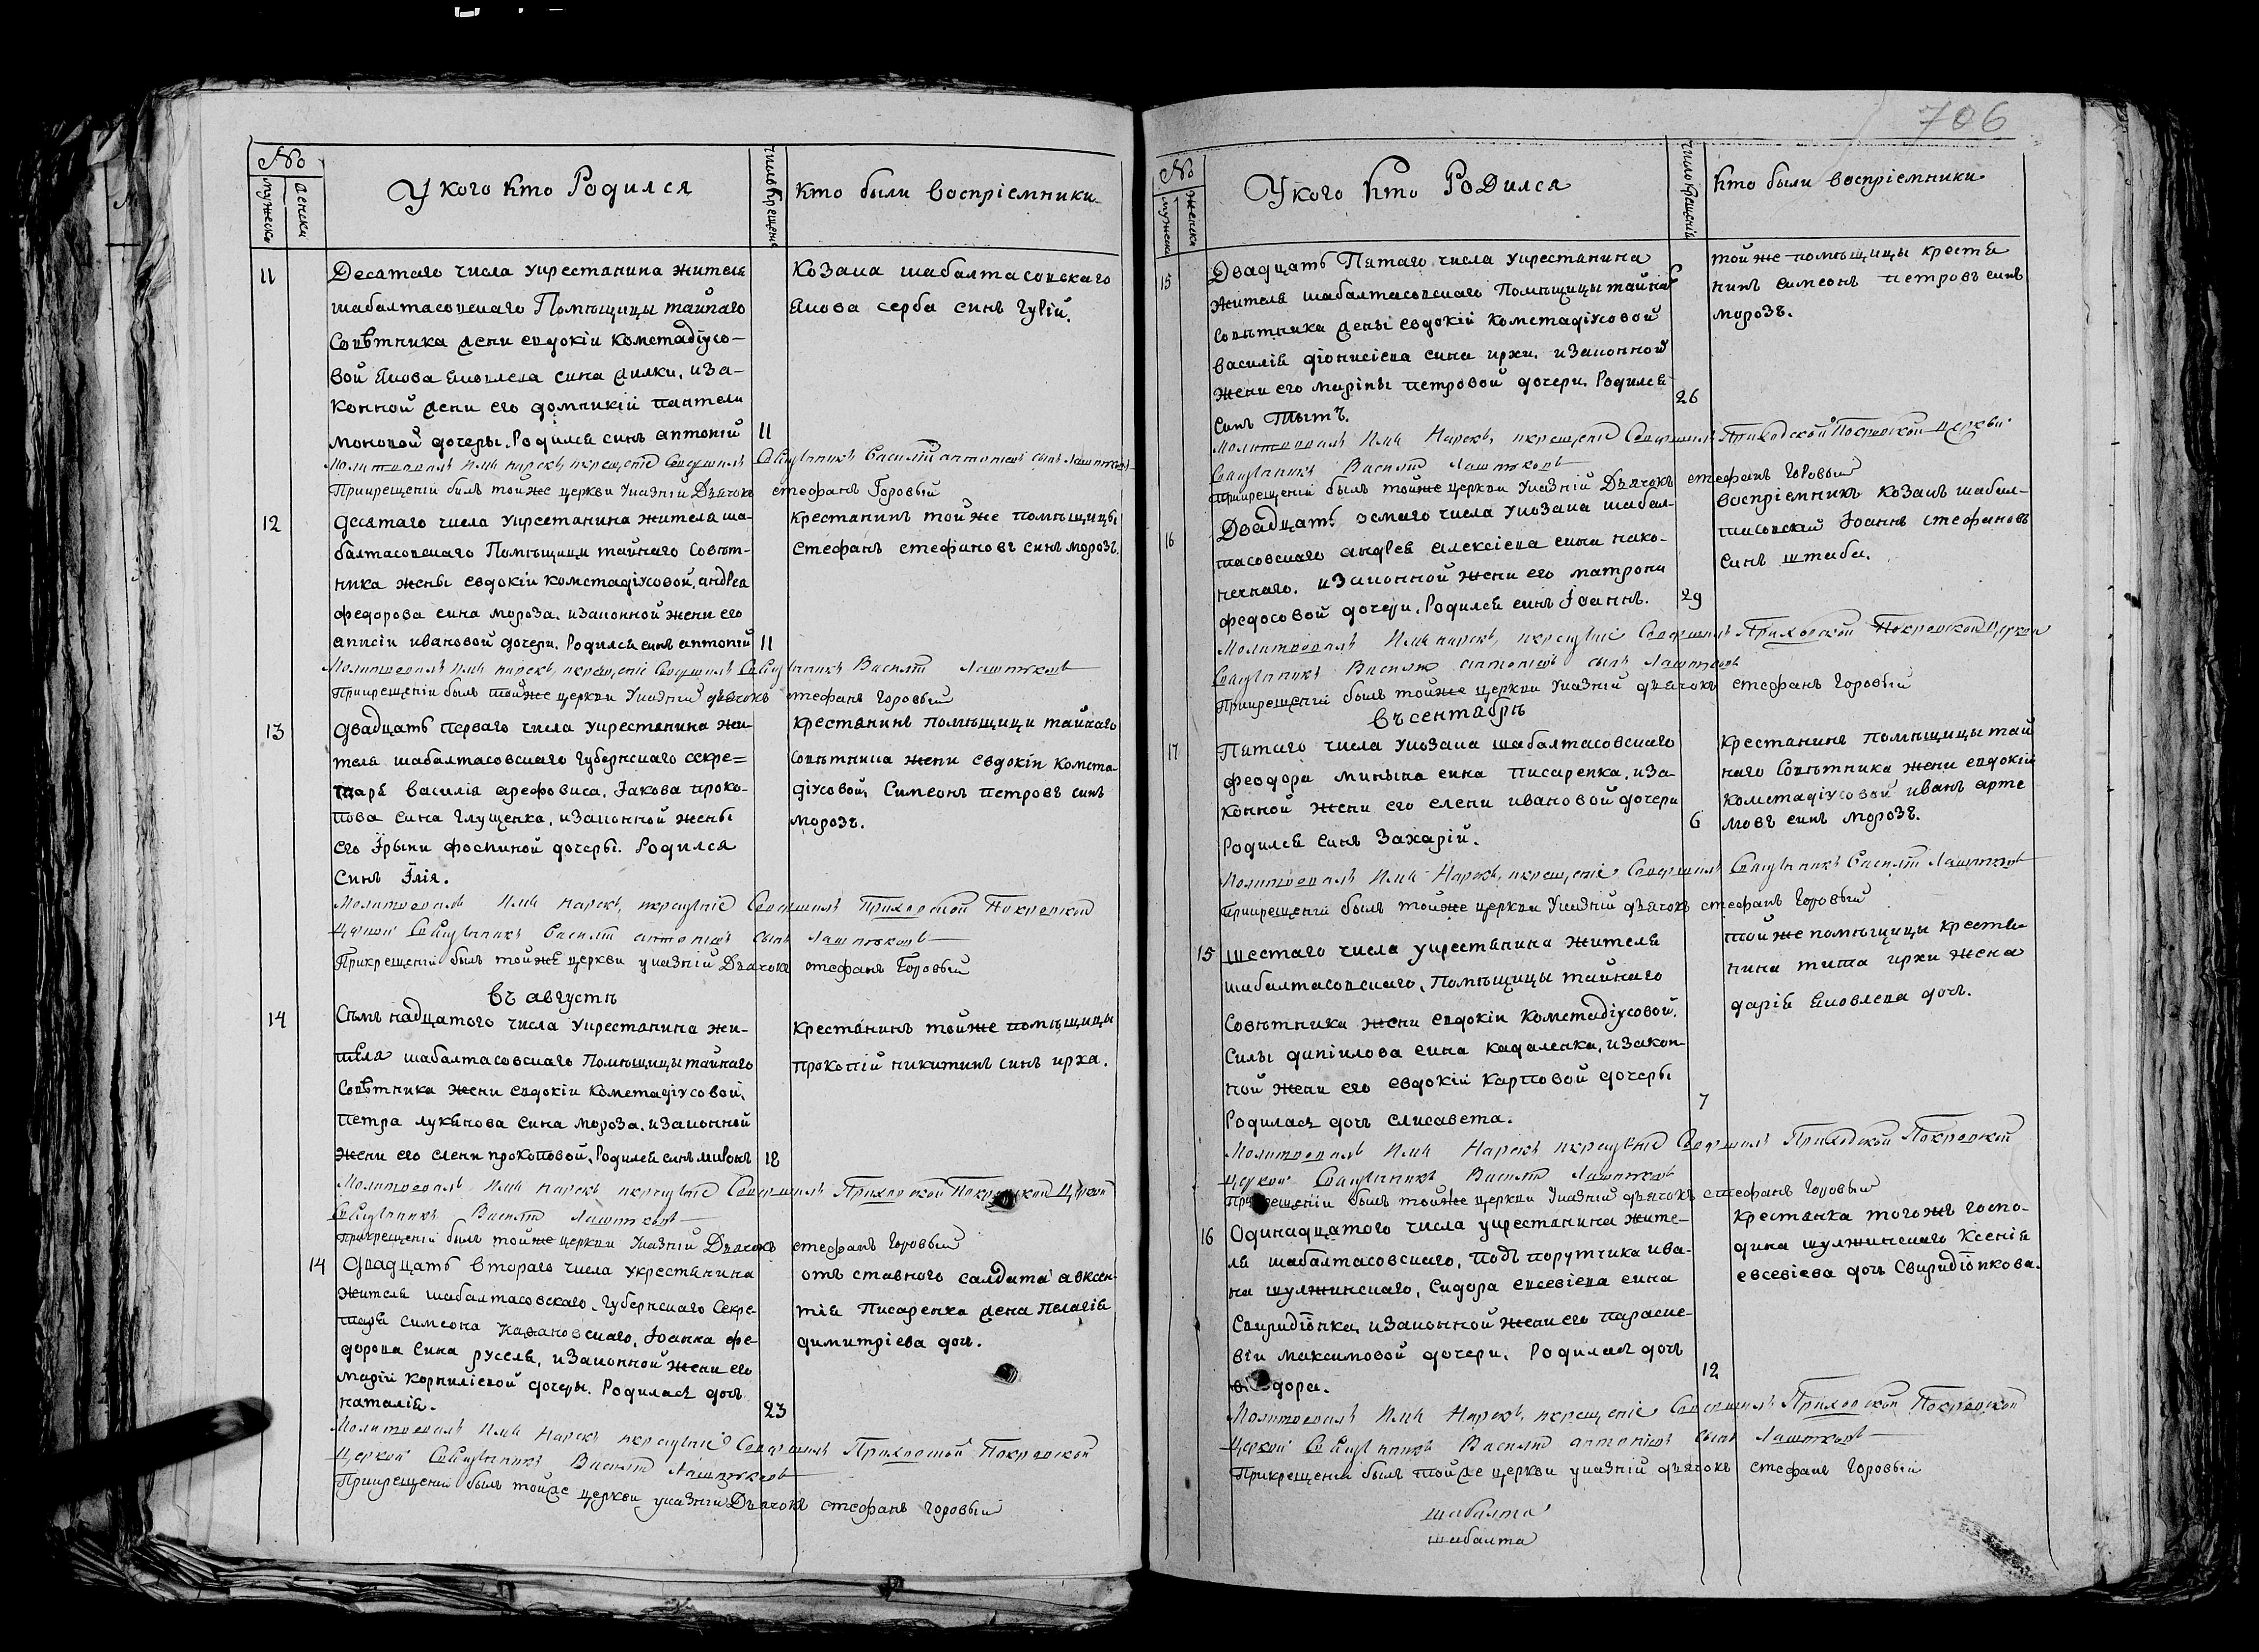 706
№
мужеска
женска
У кого кто Родился
число крещенія
кто были воспріемники
11
Десятаго числа укрестянина жителя
шабалтасовскаго Помѣщицы тайнаго
Совѣтника жени евдокіи кометадіусо-
вой Якова Яковлева сина дилки, иза-
конной жени его домникіи пантели
моновой дочеры. Родился синъ антоній
11
козака шабалтасовскаго
Якова серба синъ гурій.
Молитвовалъ имя нарекъ, икрещеніе Совершилъ Священникъ Василій антоніевъ сынъ Лашчковъ
Прикрещеніи билъ тойже церкви указній Дьячокъ стефанъ Горовый
12
десятаго числа укрестянина жителя ша-
балтасовскаго Помѣщици тайнаго Совѣт-
ника жены евдокіи кометадіусовой, андрея
федорова сина мороза, изаконной жени его
аннсіи ивановой дочери. Родился синъ антоній
11
крестянинъ тойже помѣщицы
Стефанъ стефановъ синъ морозъ.
Молитвовалъ имя нарекъ, икрещеніе Совершилъ Священникъ Василій Лашчковъ
Прикрещеніи былъ тойже церкви указній дьячокъ стефанъ Горовый
13
двадцать перваго числа укрестянина жи-
теля шабалтасовскаго губернскаго секре=
таря василія арефовиса, Іакова проко-
пова сина глущенка, изаконной жены
его Ірыни фоминой дочеры. Родился
синъ Ілія.
крестянинъ помѣщици тайнаго
совѣтника жени евдокіи комета-
діусовой, Симеонъ петровъ синъ
морозъ.
Молитвовалъ имя нарекъ, икрещеніе Совершилъ Приходской Покровской
церкви Священникъ Василій антоніевъ сынъ Лашчковъ
Прикрещеніи былъ тойже церкви указній Дьячокъ стефанъ Горовый
въ августѣ
14
Сѣмънадцатого числа укрестянина жи-
теля шабалтасовскаго Помѣщицы тайнаго
Совѣтника жени евдокіи кометадіусовой,
петра лукянова сина мороза, изаконной
жени его елени прокоповой, Родился синъ миронъ
18
крестянинъ тойже помѣщицы
прокопій никитинъ синъ ирха.
Молитвовалъ имя нарекъ икрещеніе Совершилъ Приходской Покровской Церкви
Священникъ Василій Лашчковъ
Прикрещеніи былъ тойже церкви указній Дьячокъ стефанъ Горовый
14
Двадцать втораго числа укрестянина
жителя шабалтасовскаго, губернскаго Секре-
таря симеона кадановскаго, Іоанна фе-
дорова сина руселя, изаконной жени его
маріи корниліевой дочеры. Родилася дочь
наталія.
23
отъ ставного салдата авксен-
тія Писаренка жена пелагія
димитріева дочъ.
Молитвовалъ имя нарекъ икрещеніе Совершилъ Приходской Покровской
Церкви Священникъ Василій Лашчковъ
Прикрещеніи былъ тойже церкви указній Дьячокъ стефанъ Горовый
№
мужеска
женска
У кого кто Родился
число крещенія
кто были воспріемники
15
Двадцать Пятаго числа укрестянина
жителя шабалтасовскаго Помѣщицы тайнаго
совѣтника жены евдокіи кометадіусовой
василія діонисіева сина ирхи, изаконной
жени его маріны петровой дочери. Родился
синъ Тытъ.
26
тойже помѣщицы крестя
нинъ симеонъ петровъ синъ
морозъ.
Молитвовалъ имя Нарекъ, икрещеніе Совершилъ Приходской Покровской церкви
Священникъ Василій Лашчковъ
Прикрещеніи былъ тойже церкви Указній Дьячокъ стефанъ Горовый
16
Двадцать осмаго числа укозака шабал-
тасовскаго андрея алексіева сина нако-
нечнаго, изаконной жени его матрони
федосовой дочери. Родился синъ Іоаннъ.
29
воспріемникъ козакъ шабал-
тасовскій Іоаннъ стефановъ
синъ штаба.
Молитвовалъ имя нарекъ, икрещеніе Совершилъ Приходской Покровской Церкви
Священникъ Василій антоніевъ сынъ Лашчковъ
Прикрещеніи былъ тойже церкви Указній дьячокъ стефанъ Горовый
въ сентябрѣ
17
Пятаго числа укозака шабалтасовскаго
феодора минына сина писаренка, иза-
конной жени его елени ивановой дочери
Родился синъ Захарій.
6
крестянинъ помѣщицы тай
наго совѣтника жени евдокіи
кометадіусовой иванъ арте
мовъ синъ морозъ.
Молитвовалъ имя Нарекъ, икрещеніе Совершилъ Священникъ Василій Лашчковъ
Прикрещеніи былъ тойже церкви Указній дьячокъ стефанъ Горовый
15
шестаго числа укрестянина жителя
шабалтасовскаго, Помѣщицы тайнаго
Совѣтника жени евдокіи кометадіусовой,
Силы даніилова сина кадаленка, изакон-
ной жени его евдокіи карповой дочеры
Родилася дочъ елисавета.
7
тойже помѣщицы крестя-
нина тита ирхи жена
дарія Яковлева дочъ.
Молитвовалъ имя Нарекъ икрещеніе Совершилъ Приходской Покровской
Церкви Священникъ Василій Лашчковъ
Прикрещеніи былъ тойже церкви Указній дьячокъ стефанъ Горовый
16
Одинадцатого числа укрестянина жите-
ля шабалтасовскаго, подъ порутчика ива-
на шулжинскаго, Сидора евсевіева сина
Свиридонка, изаконной жени его параске-
віи максимовой дочери. Родилася дочъ
дора.
12
крестянка тогожъ госпо-
дина шулжинскаго ксенія
евсевіева дочъ Свиридонкова.
Молитвовалъ имя Нарекъ, икрещеніе Совершилъ Приходской Покровской
Церкви Священникъ Василій антоніевъ сынъ Лашчковъ
Прикрещеніи былъ тойже церкви указній дьячокъ стефанъ Горовый
шабалта
шабалта